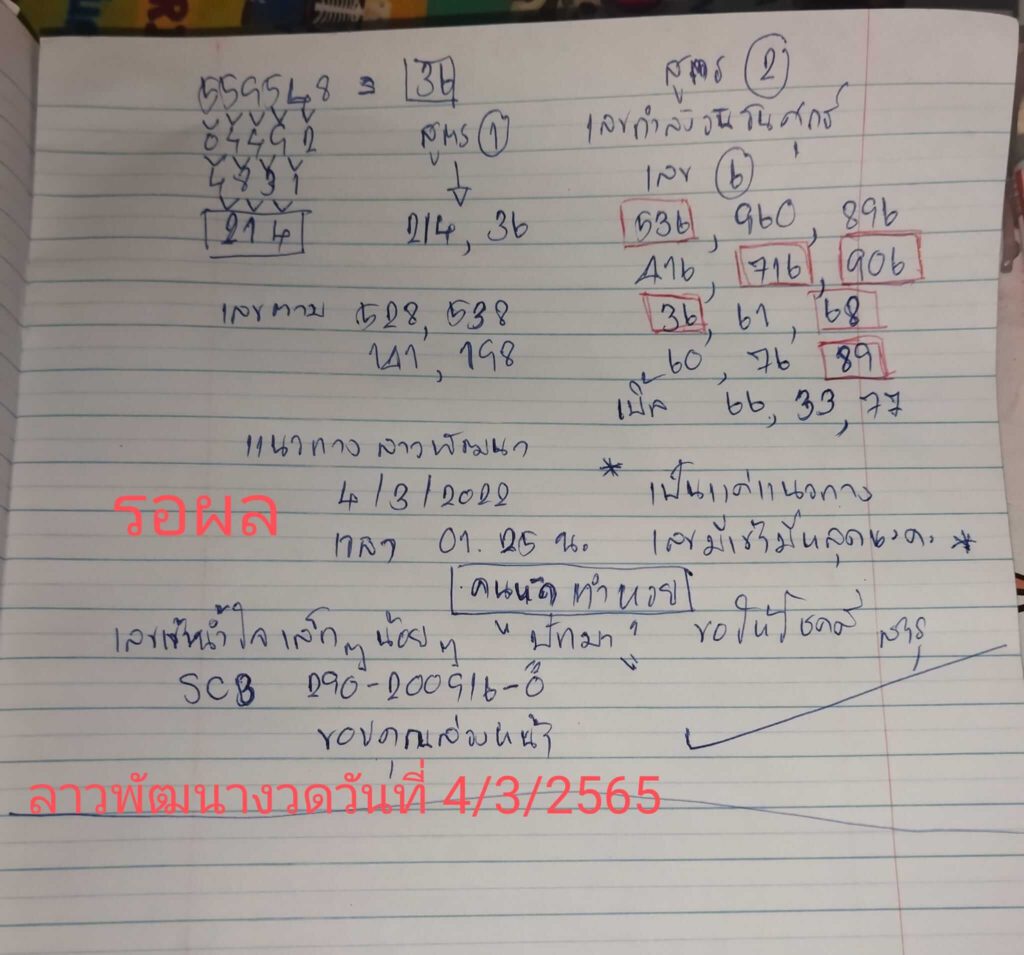 559548 = 36
04492
4831
214
สูตร ①
214, 36
เลขตาม 528, 538
141, 198
สูตร ②
เลขกำลังวัน วันศุกร์
เลข ⑥
536, 960, 896
416, 716, 906
36, 61, 68
60, 76 89
เบิ้ล 66, 33, 77
แนวทาง ลาวพัฒนา
4/3/2022
รอผล
เวลา 01.25 น.
* เป็นแค่แนวทาง
เลขมีเข้ามีหลุดนะคะ *
คนหัด ทำหวย
น้ำใจ เล็กๆ น้อยๆ "ปัทมา" ขอให้โชคดี สาธุ
SCB 290-200916-0
ขอบคุณล่วงหน้า
ลาวพัฒนางวดวันที่ 4/3/2565